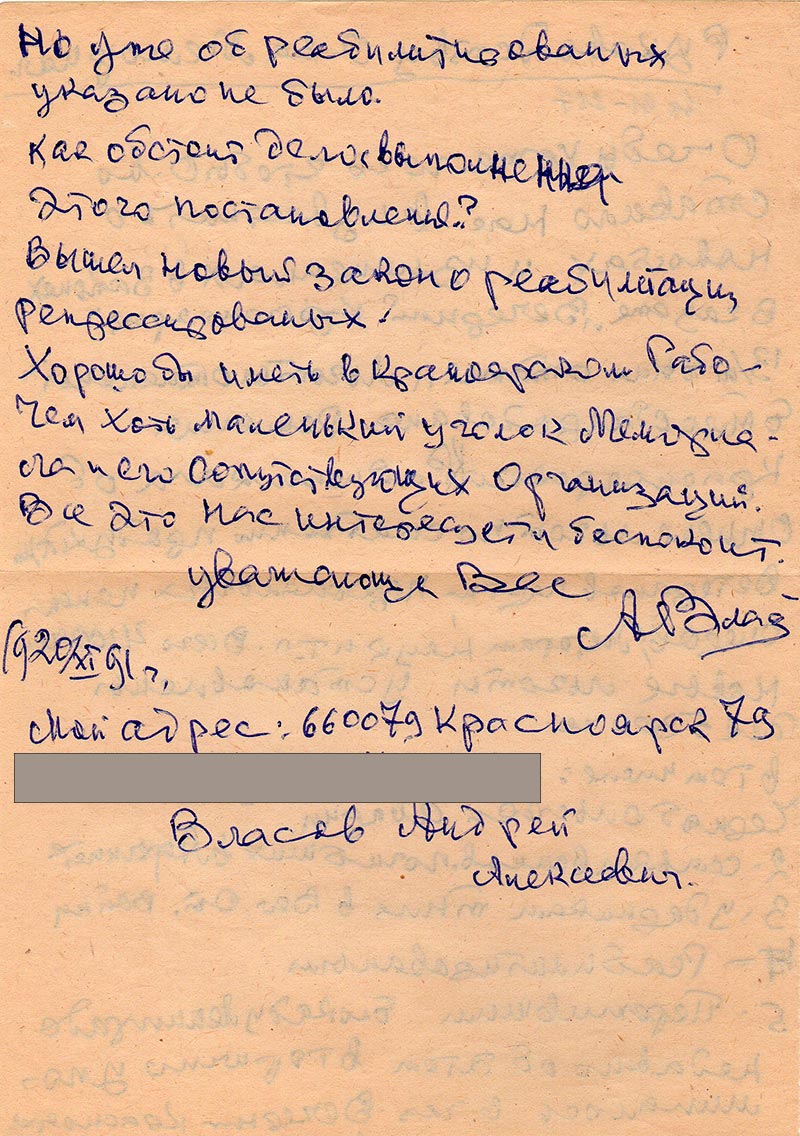 Но уже об реабилитированых
указано не было.
как обстоит дело с выполнением
этого постановления?
Вышел новый закон о реабилитации
репрессированых.
Хорошо бы иметь в Красноярском Рабо-
чем хоть маленький уголок Мемориа-
ла и его сопутствующих Организаций.
Все это нас интересует и беспокоит.
уважающие Вас
АВлас
20/XI 91 г.
Мой адрес: 660079 Красноярск 79
Власов Андрей
Алексеевич.